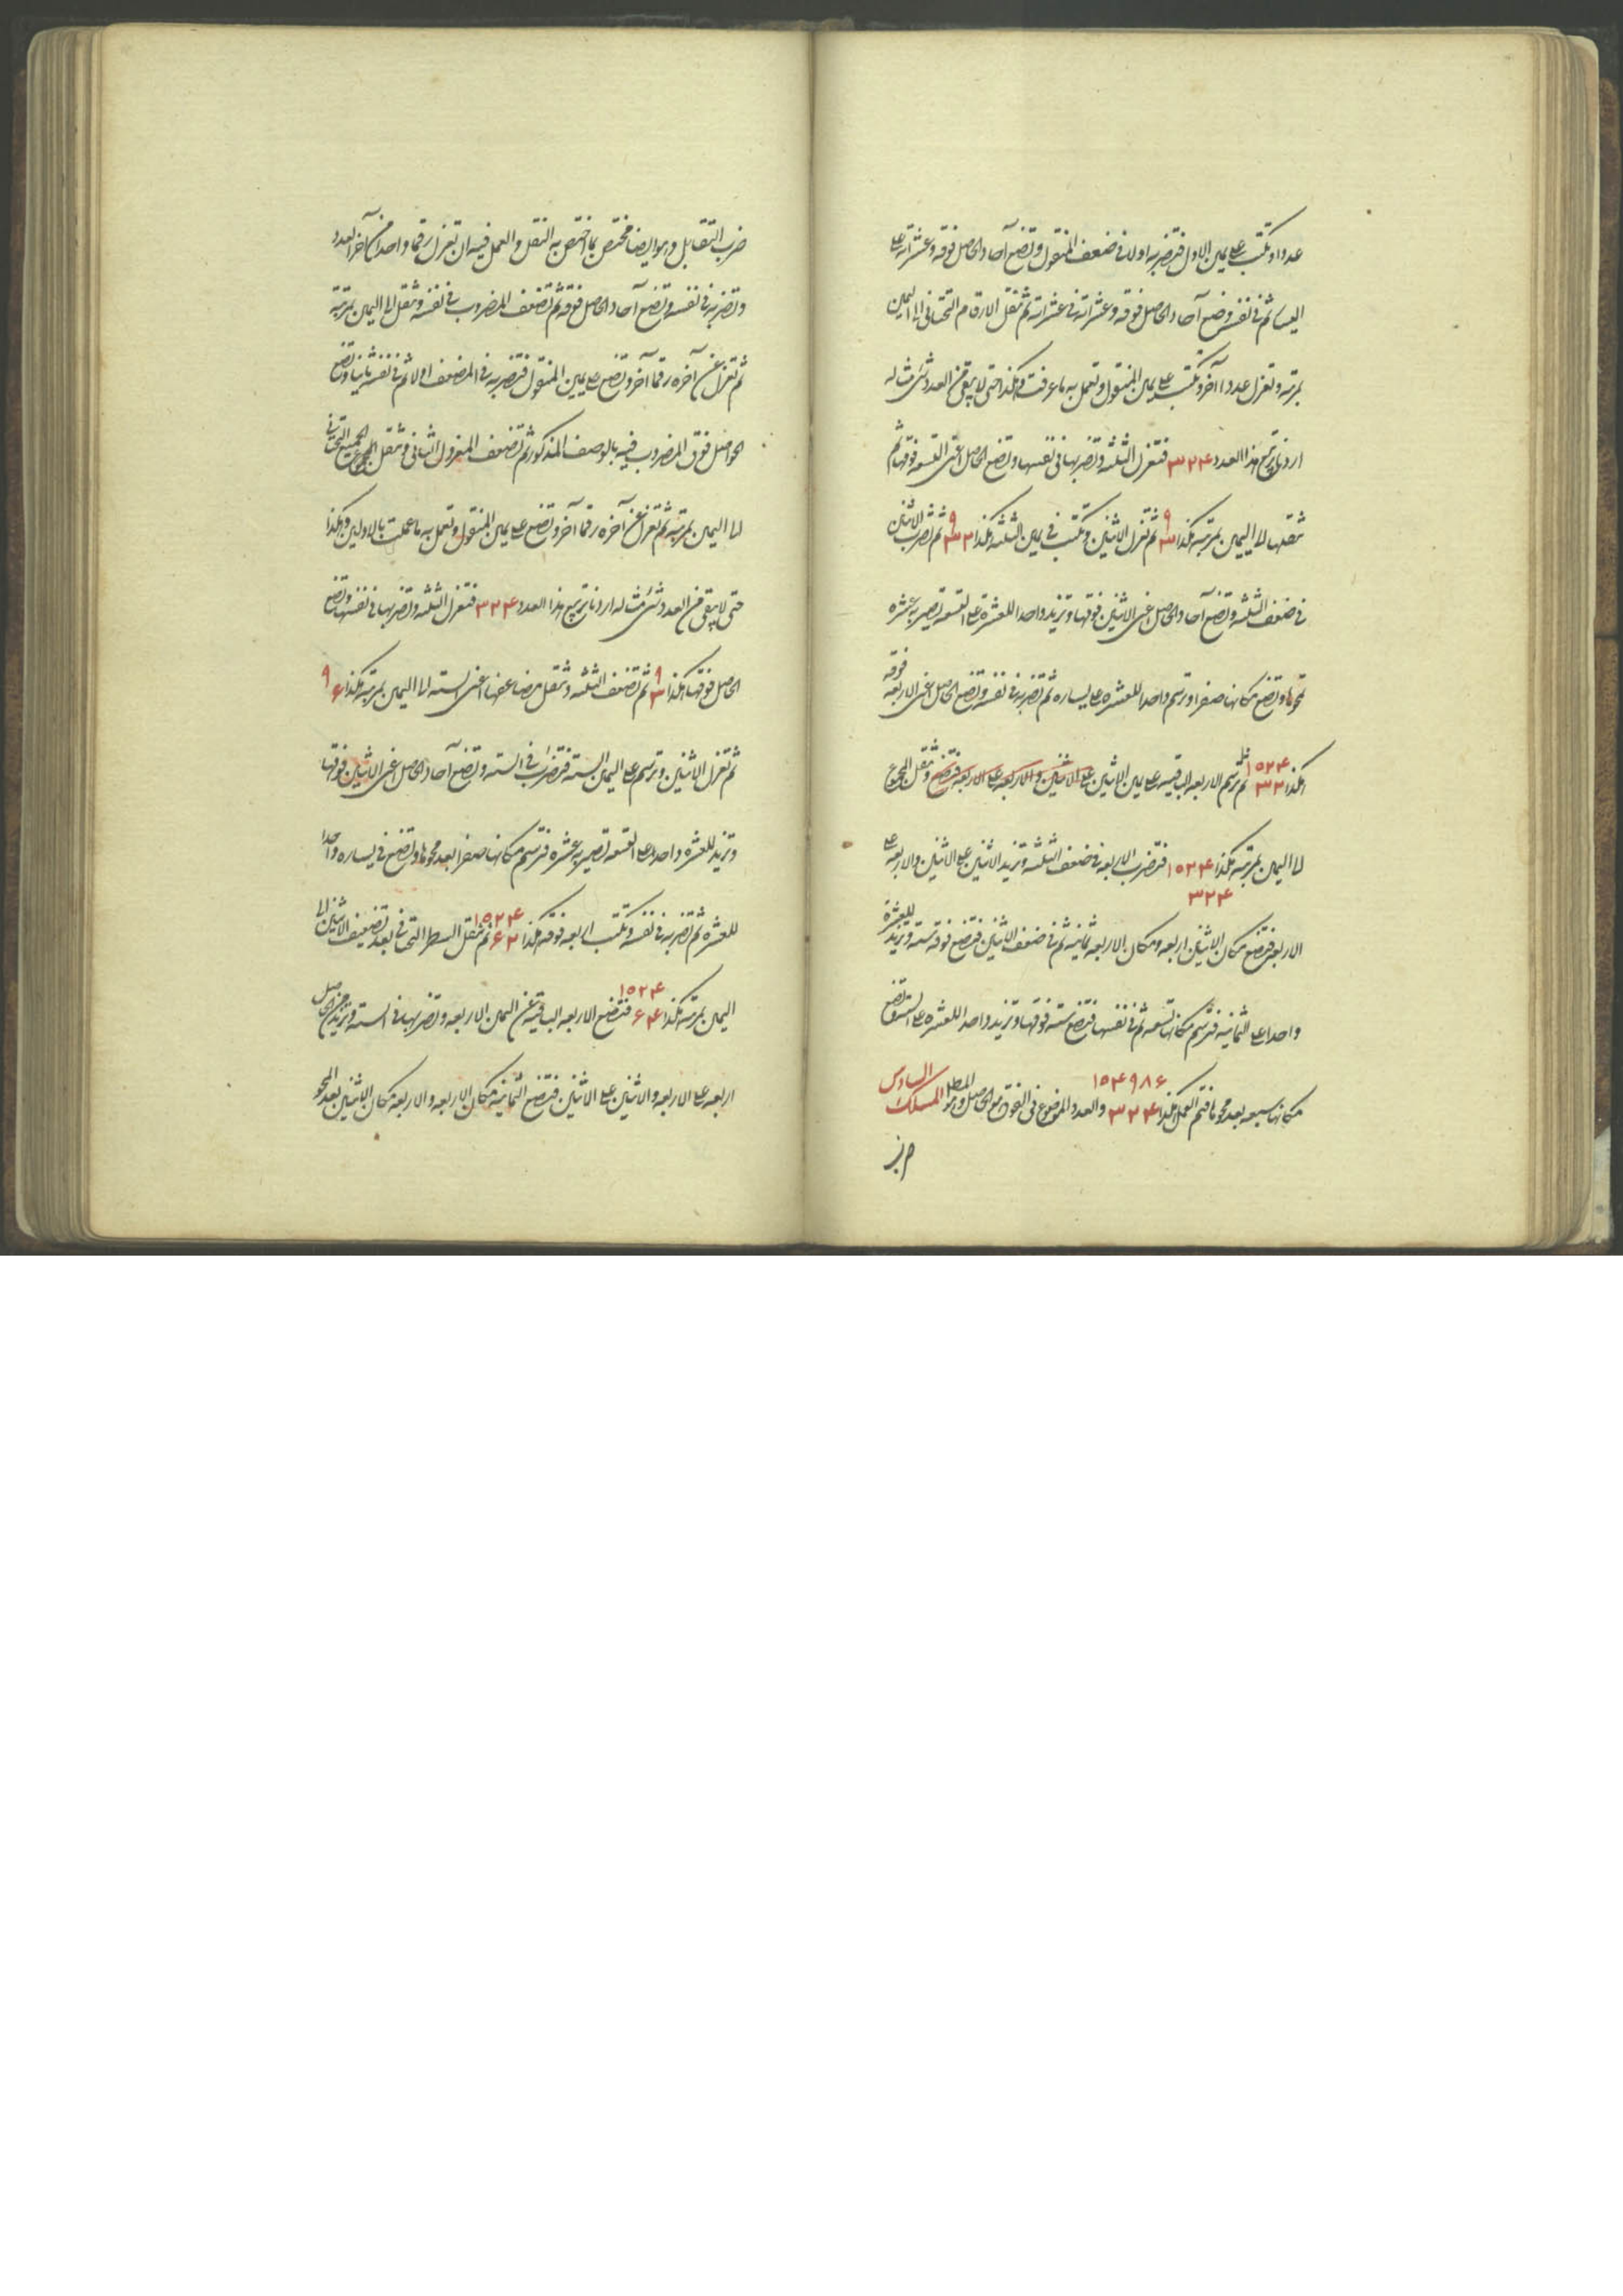 عددا وتكتب على يمين الاول فتضربه اولا فى ضعف المنقول وتضع آحاد الحاصل فوقه وعشراته على
اليسار ثم فى نفسه وضع آحاد الحاصل فوقه وعشراته فى عشراته ثم تنقل الارقام التحتانى الى اليمين
بمرتبة وتعزل عددا آخر وتكتب على يمين المنقول وتعمل به ما عرفت وهكذا حتى لا يبقى من العدد شئ مثاله
اردنا تربيع هذا العدد ۳۲۴ فتعزل الثلثه وتضربها فى نفسها وتضع الحاصل اعنى التسعه فوقها ثم
تنقلها الى اليمين بمرتبة هكذا ۹ ۳ ثم تعزل الاثنين وتكتب فى يمين الثلثه هكذا ۹ ۳۲ ثم تضرب الاثنين
فى ضعف الثلثه وتضع آحاد الحاصل اعنى الاثنين فوقها وتزيد واحدا للعشرة على التسعه تصير به عشره
تمحوها وتضع مكانها صفرا وترسم واحدا للعشره على يساره ثم تضربه فى نفسه وتضع الحاصل اعنى الاربعه فوقه
هكذا ۱۰۲۴ ۳۲ ثم ترسم الاربعه الباقيه على يمين الاثنين على الاثنين والاربعه على الاربعه فتضع وتنقل المجموع
الى اليمين بمرتبة هكذا ۱۰۲۴ ۳۲۴ فتضرب الاربعه فى ضعف الثلثه وتزيد الاثنين على الاثنين والاربعه على
الاربعه فتضع مكان الاثنين اربعه ومكان الاربعه ثمانيه ثم فى ضعف الاثنين فتضع فوقه سته وتزيد للعشرة
واحدا على الثمانيه فترسم مكانها تسعه ثم فى نفسها فتضع سته فوقها وتزيد واحدا للعشره على السته وتضع
مكانها سبعه بعد محوها فتم العمل هكذا ۱۰۴۹۸۶ ۳۲۴ والعدد الموضوع فى الفوق هو الحاصل وهو المط المسلك السادس
ضرب
ضرب التقابل وهو ايضا مختص بما اختص به النقل والعمل فيه ان تعزل رقما واحدا من آخر العدد
وتضربه فى نفسه وتضع آحاد الحاصل فوقه ثم تضعف المضروب فى نفسه وتنقل الى اليمين بمرتبة
ثم تعزل عن آخره رقما آخر وتضع على يمين المنقول فتضربه فى المضعف اولا ثم فى نفسه ثانيا وتضع
الحواصل فوق المضروب فيه بالوصف المذكور ثم تضعف المعزول الثانى وتنقل الجميع التحتانى
الى اليمين بمرتبة ثم تعزل عن آخره رقما آخر وتضع على يمين المنقول وتعمل به ما عملت بالاولين وهكذا
حتى لا يبقى من العدد شئ مثاله اردنا تربيع هذا العدد ۳۲۴ فتعزل الثلثه وتضربها فى نفسها وتضع
الحاصل فوقها هكذا ۹ ۳ ثم تضعف الثلثه وتنقل مضاعفها اعنى السته الى اليمين بمرتبة هكذا ۹ ۶
ثم تعزل الاثنين وترسم على اليمين السته فتضرب فى السته وتضع آحاد الحاصل اعنى الاثنين فوقها
وتزيد للعشره واحدا على التسعه تصير به عشره فترسم مكانها صفرا بعد محوها وتضع فى يساره واحدا
للعشره ثم تضربه فى نفسه وتكتب اربعه فوقه هكذا ۱۰۲۴ ۶۲ ثم تنقل السطر التحتانى بعد تضعيف الاثنين الى
اليمين بمرتبة هكذا ۱۰۲۴ ۶۴ فتضع الاربعه الباقيه عن اليمين الاربعه وتضربها فى السته وتزيد من الحاصل
اربعه على الاربعه والاثنين على الاثنين فتضع الثمانيه مكان الاربعه والاربعه مكان الاثنين بعد المحو